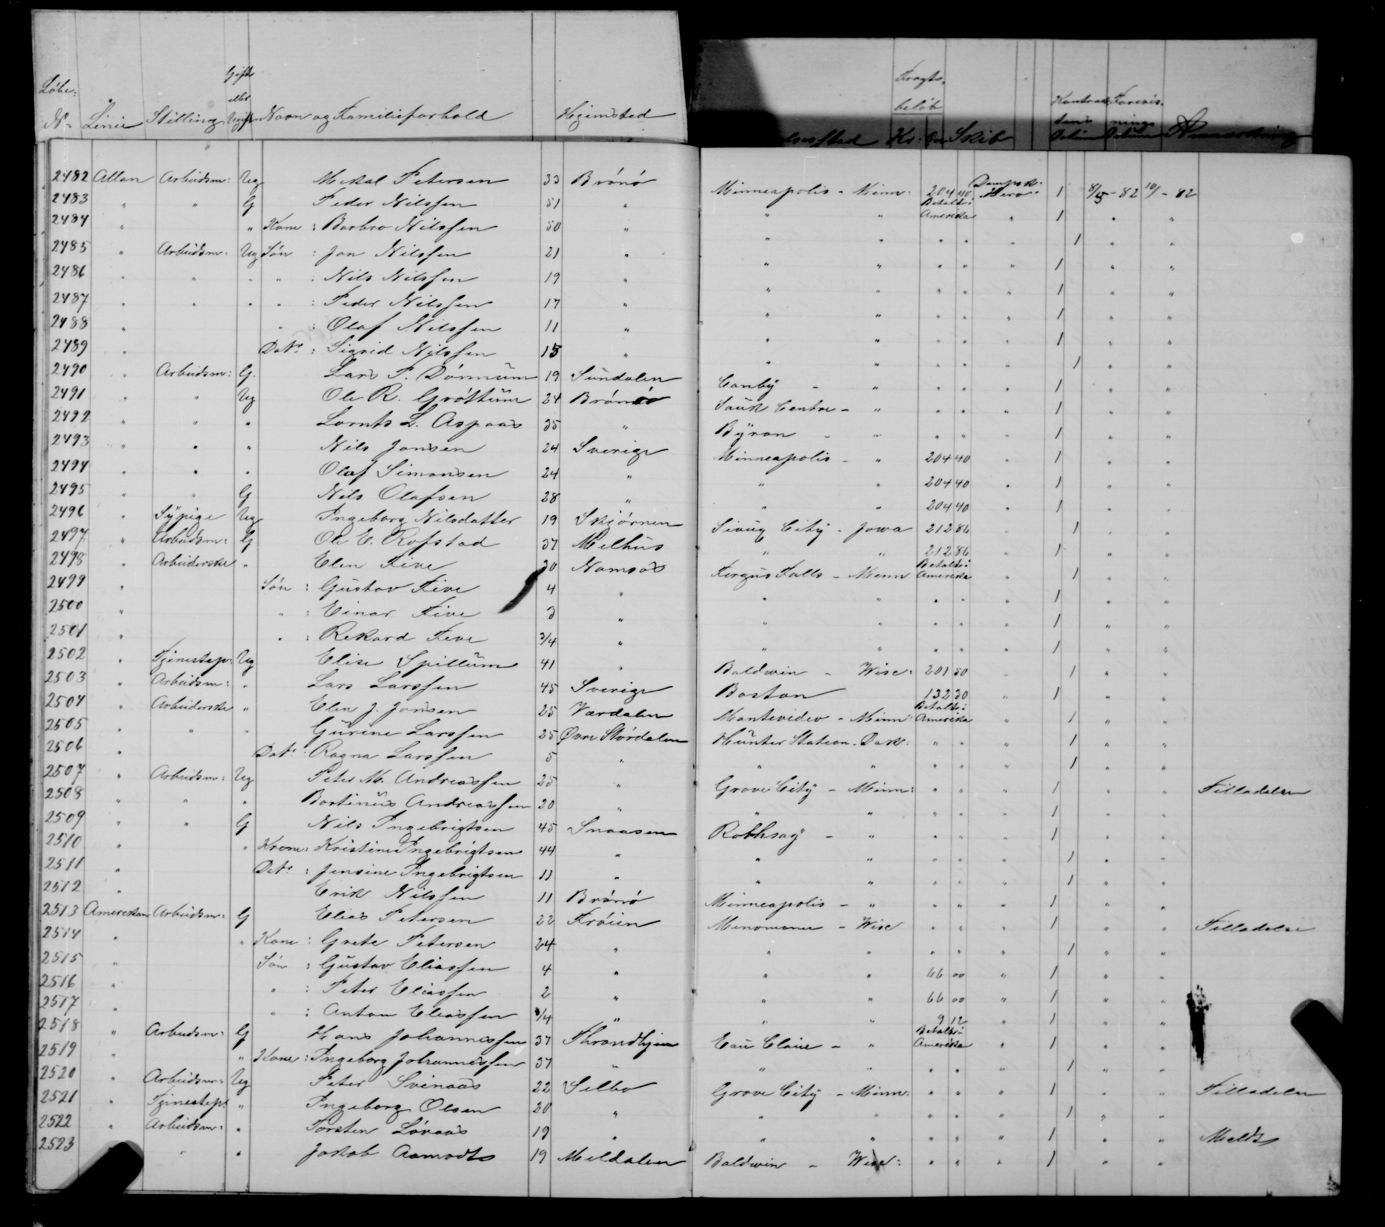 Løbe- No Linie Stilling Gift eller Ugift Navn og Familieforhold Hjemsted Fragtbeløb Kr. Skib
2482 Allan Arbeidsm: Ug Mikal Petersen 33 Brönö Minneapolis - Minn: 204 40 Dampsk: Hero 1
2483 " " G Peder Nilssen 51 " " " Betalt i Amerika " 1 " "
2484 " " Kone : Barbro Nilssen 50 " " " " " " 1 " "
2485 " Arbeidsm: Ug Søn : Jon Nilssen 21 " " " " " " 1 " "
2486 " " " " : Nils Nilssen 19 " " " " " " 1 " "
2487 " " " " : Peder Nilssen 17 " " " " " " 1 " "
2488 " " : Olaf Nilssen 11 " " " " " " 1 " "
2489 " Datr : Sigrid Nilssen 15 " " " " " " 1 " "
2490 " Arbeidsm: G. Lars P. Dönnüm 19 Sündalen Canby - " " " " 1 " "
2491 " " Ug Ole R. Gröttüm 24 Brönö Sauk Center - " " " " 1 " "
2492 " " " Lornts L. Aspaas 25 " Byron - " " " " 1 " "
2493 " " " Nils Jonsen 24 Sverige Minneapolis - " 204 40 " 1 " "
2494 " " " Olaf Simonsen 24 " " " 204 40 " 1 " "
2495 " " G Nils Olafsen 28 " " " 204 40 " 1 " "
2496 " Sÿpige Ug Ingeborg Nilsdatter 19 Skjörnen Sioux City - Jowa 212 86 " 1 " "
2497 " Arbeidsm: G Ole E. Rofstad 37 Melhüs " " 212 86 " 1 " "
2498 " Arbeiderske " Elen Five 30 Namsos Fergus Falls - Minn Betalt i Amerika " 1 " "
2499 " Søn : Güstav Five 4 " " " " " " 1 " "
2500 " " : Einar Five 2 " " " " " " 1 " "
2501 " " : Rikard Five 3/4 " " " " " " 1 " "
2502 " Tjenestep: Ug Elise Spillüm 41 " Baldwin - Wisc: 201 50 " 1 " "
2503 " Arbeidsm: " Lars Larssen 45 Sverige Boston 132 30 " 1 " "
2504 " Arbeiderske " Elen J. Jonsen 25 Værdalen Montevideo - Minn: Betalt i Amerika " 1 " "
2505 " " " Gürine Larssen 25 Øvre Stördalen Hünter Station - Dak: " " " 1 " "
2506 " Datr : Ragna Larssen 5 " " " " " " 1 " "
2507 " Arbeidsm: Ug Peter M. Andreassen 25 " Grove City - Minn: " " " 1 " " Filladelen
2508 " " " Bortinüs Andreassen 20 " " " " " " 1 " "
2509 " " G Nils Ingebrigtsen 45 Snaasen " " " " 1 " "
2510 " " Kone : Kristine Ingebrigtsen 44 " " " " " " 1 " "
2511 " Datr : Jensine Ingebrigtsen 11 " " " " " " 1 " "
2512 " Erik Nilssen 11 Brönö Minneapolis - " " " " 1 " "
2513 Amerekan Arbeidsm: G Elias Petersen 22 Fröien Menomonee - Wisc " " " 1 " "
2514 " " Kone : Grete Petersen 24 " " " " " " 1 " "
2515 " Søn : Güstav Eliassen 4 " " " 66 00 " 1 " "
2516 " " : Peter Eliassen 2 " " " 66 00 " 1 " "
2517 " " : Anton Eliassen 3/4 " " " 9 12 " 1 " "
2518 " Arbeidsm: G Hans Johannessen 37 Throndhjem Eau Claire - " Betalt i Amerika " 1 " "
2519 " " Kone : Ingeborg Johannessen 37 " " " " " " 1 " "
2520 " Arbeidsm: Ug Peter Svinaas 22 Selbo Grove City - Minn: " " " 1 " " Filladelen
2521 " Tjenestep: " Ingeborg Olsen 20 " " " " " " 1 " "
2522 " Arbeidsm: " Torsten Lövaas 19 " " " " " " 1 " "
2523 " " Jakob Aamodts 19 Meldalen Baldwin - Wisc: " " " 1 " "